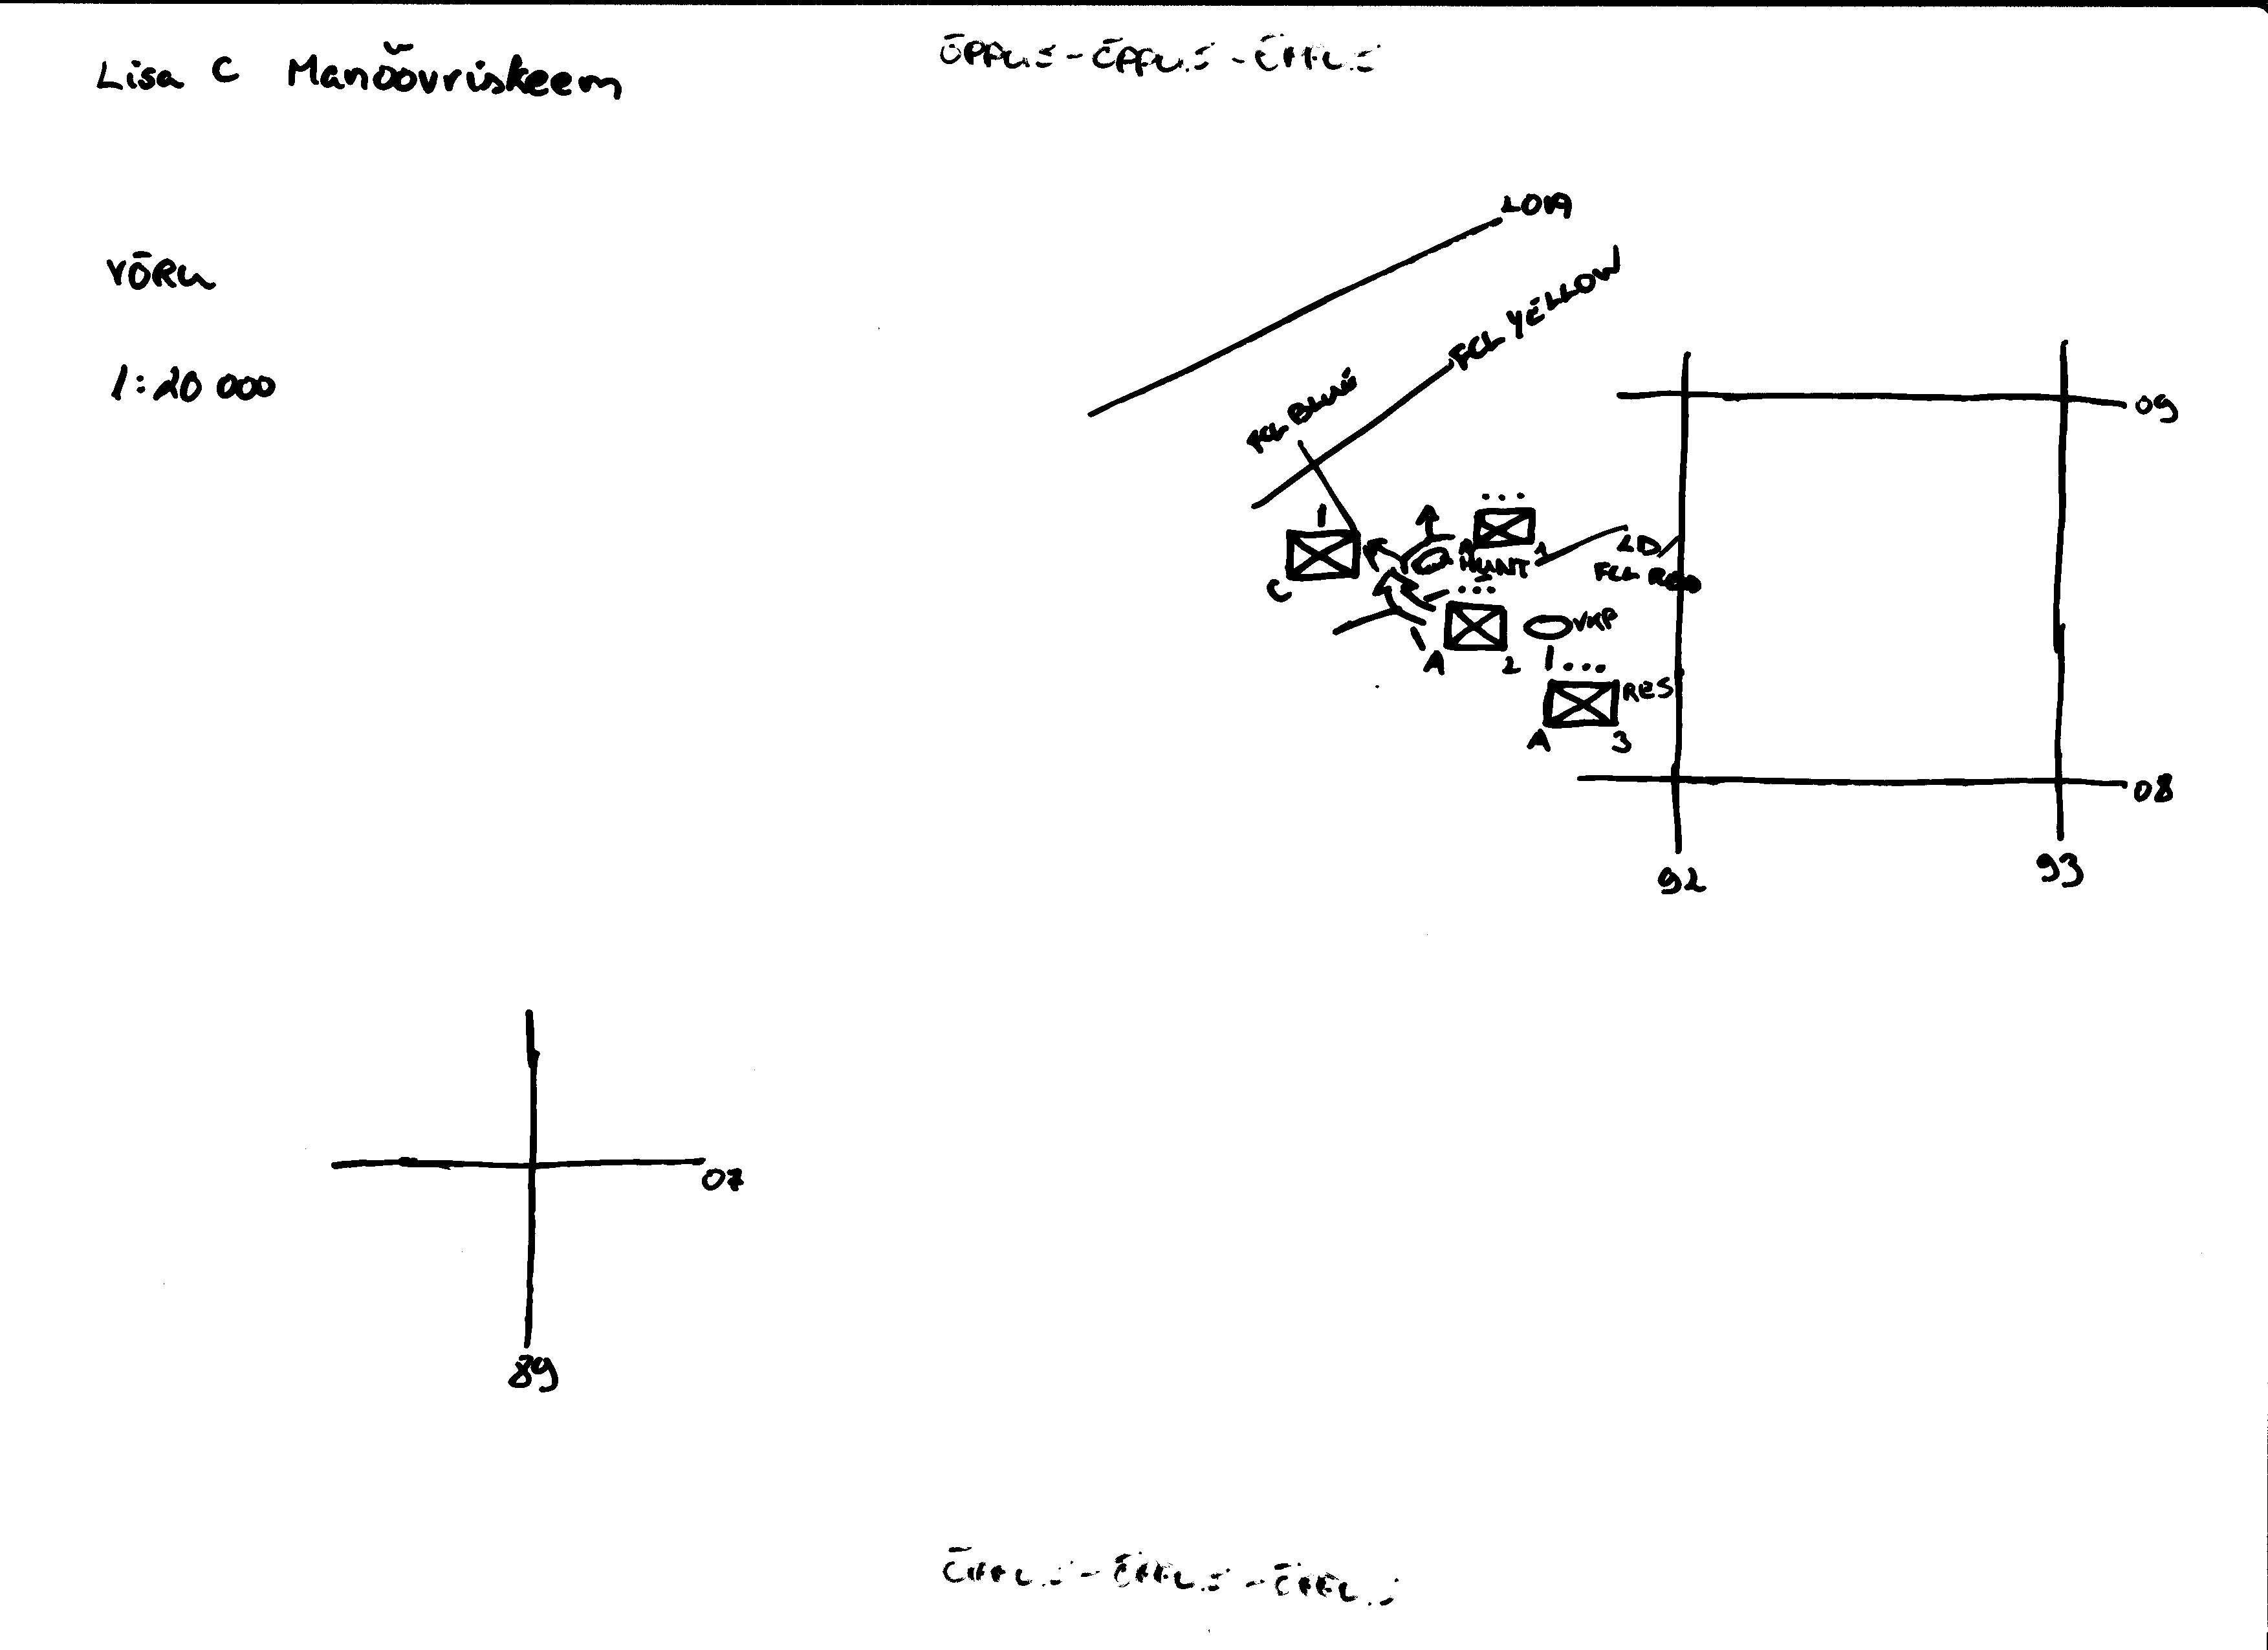 Lisa C Manöövriskeem
ÕPPUS - ÕPPUS - ÕPPUS
VÕRU
1:20 000
LOA
FCL YELLOW
FCL BLUE
09
...
1
LD/
HUNT 1
FCL RED
C
...
VKP
A 2
1 ...
RES
A 3
08
92
93
07
89
ÕPPUS - ÕPPUS - ÕPPUS